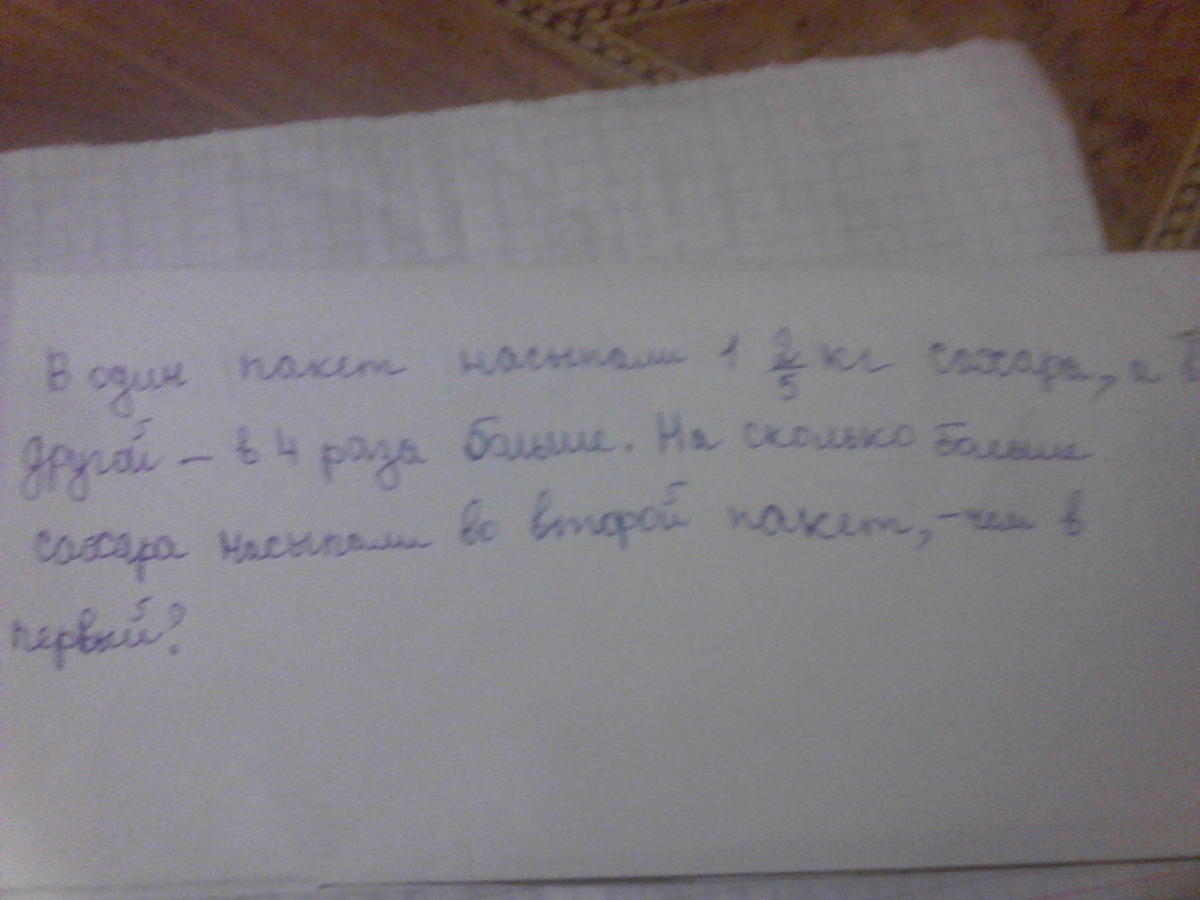 В один пакет насыпали 1 2/5 кг сахара, а в
другой – в 4 раза больше. На сколько больше
сахара насыпали во второй пакет, чем в
первый?